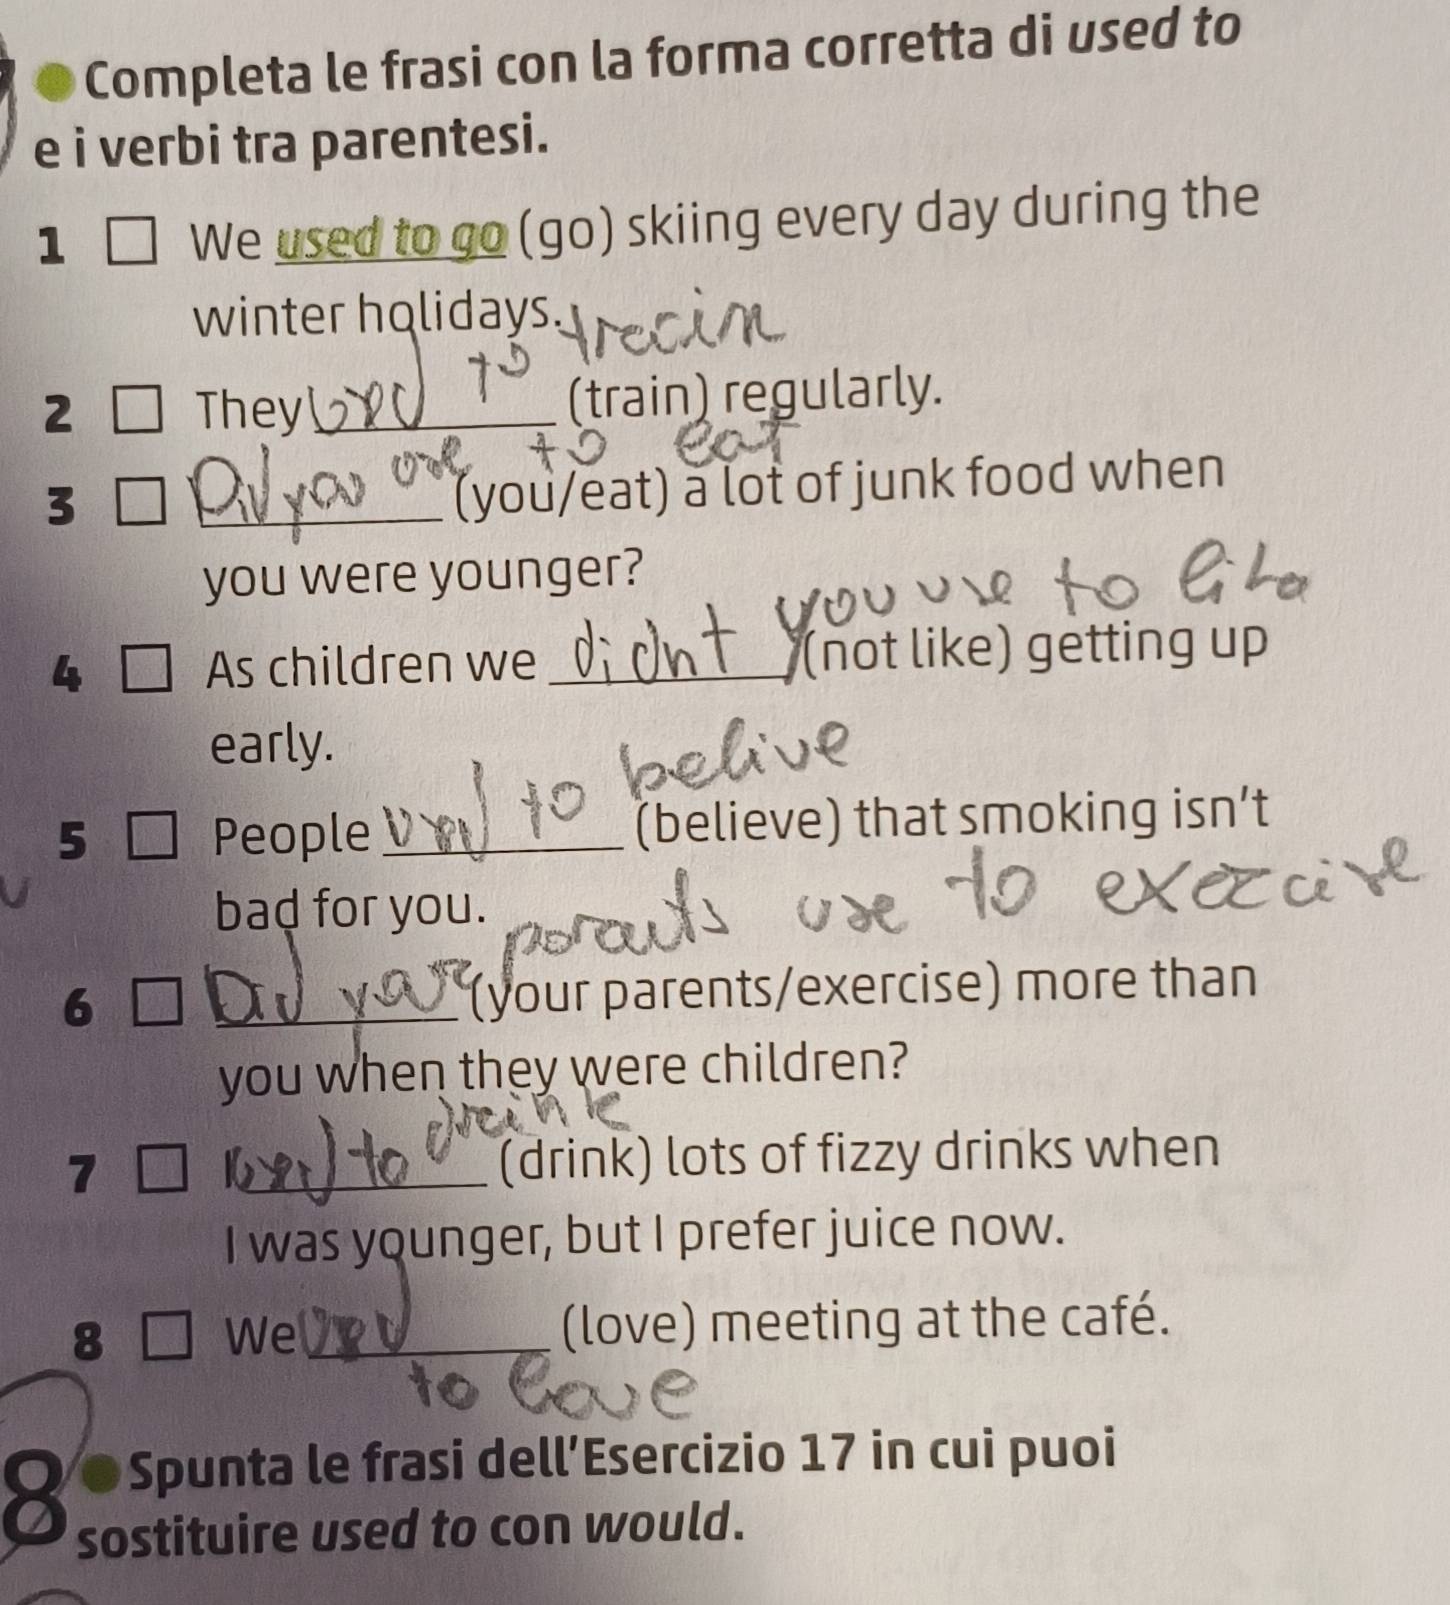 Completa le frasi con la forma corretta di used to
e i verbi tra parentesi.
1 □ We used to go (go) skiing every day during the
winter holidays.
used to train
2 □ They (train) regularly.
Did you use to eat
3 □ (you/eat) a lot of junk food when
you were younger?
4 □ As children we didnt you use to like (not like) getting up
early.
used to belive
5 □ People (believe) that smoking isn't
bad for you.
Did your parents use to exercise
6 □ (your parents/exercise) more than
you when they were children?
7 □ used to drink (drink) lots of fizzy drinks when
I was younger, but I prefer juice now.
8 □ We used (love) meeting at the café.
to love
8 Spunta le frasi dell'Esercizio 17 in cui puoi
sostituire used to con would.